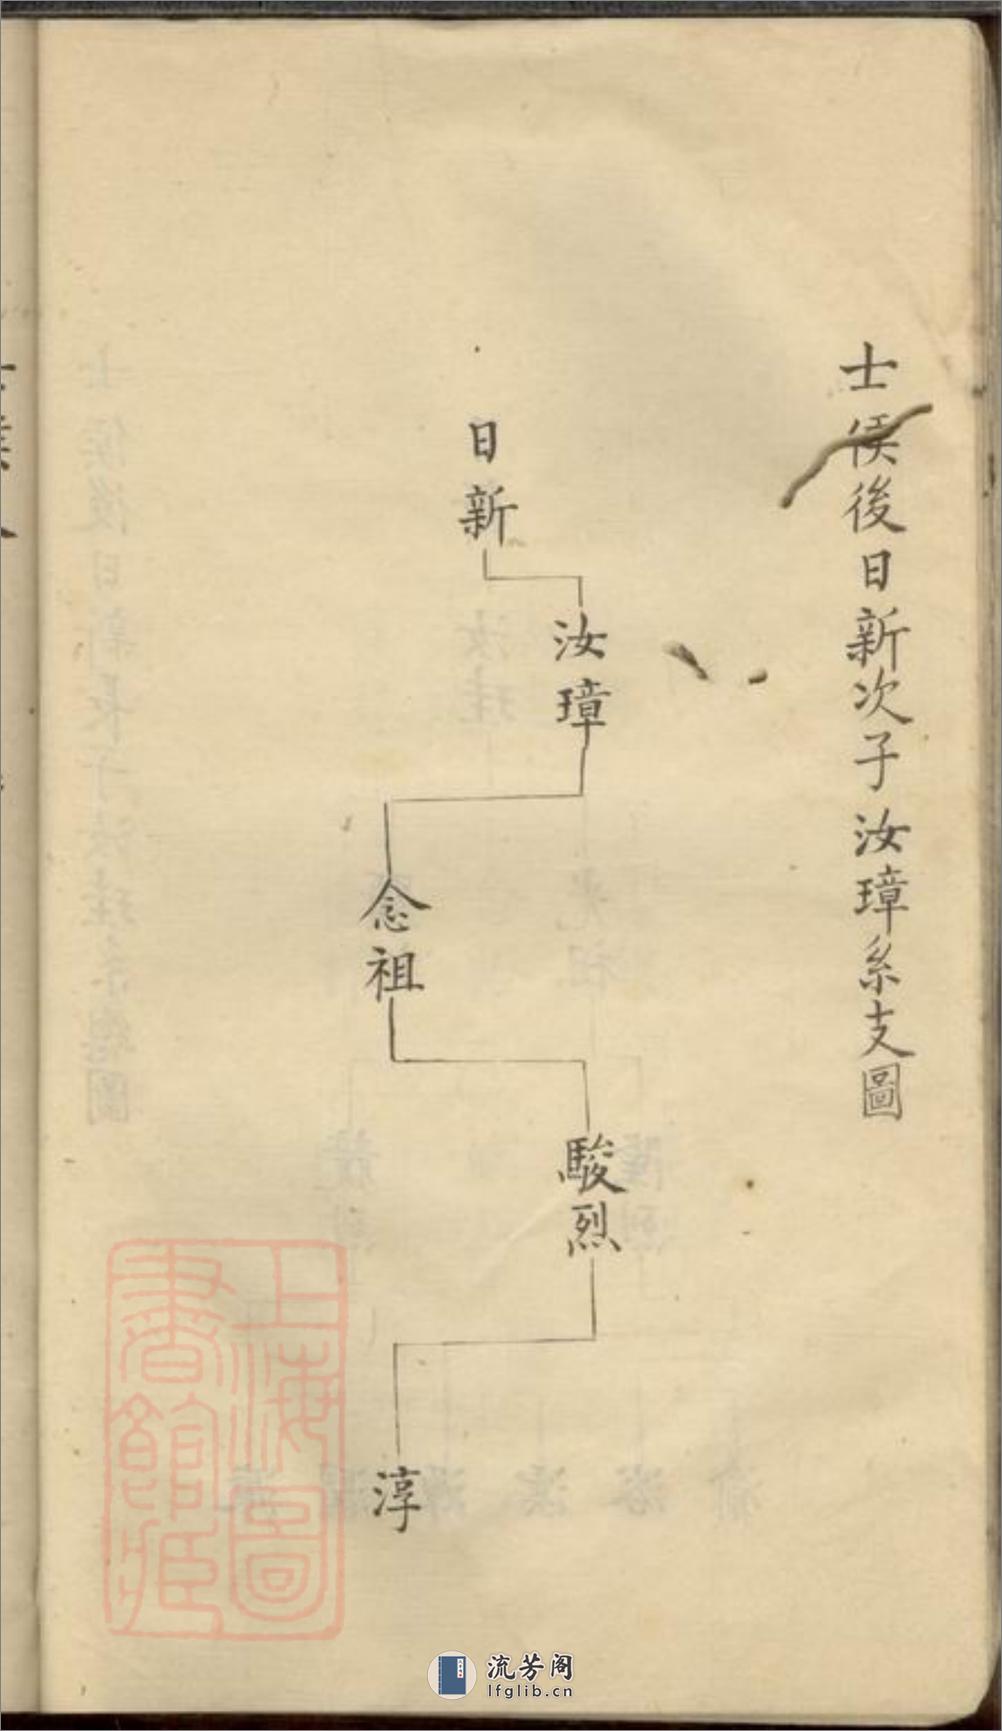 士侯後日新次子汝璋系支圖
日新
汝璋
念祖
駿烈
淳
上海圖書館藏
流芳阁
lfglib.cn